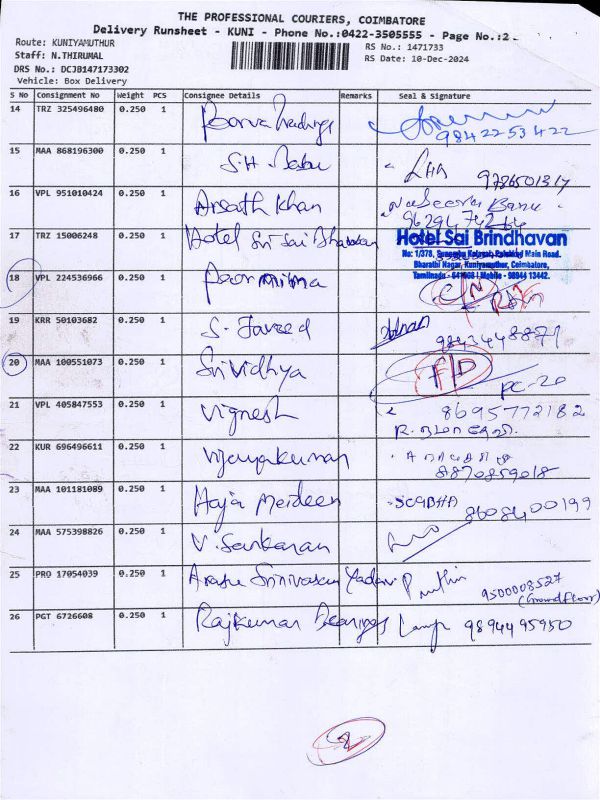 THE PROFESSIONAL COURIERS, COIMBATORE
Delivery Runsheet - KUNI - Phone No.:0422-3505555 - Page No.:2
Route: KUNIYAMUTHUR
RS No.: 1471733
Staff: N.THIRUMAL
RS Date: 10-Dec-2024
DRS No.: DCJB147173302
Vehicle: Box Delivery
S No Consignment No Weight PCS Consignee Details Remarks Seal & Signature
14 TRZ 325496480 0.250 1 Poorva Tradings
9842253422
15 MAA 868196300 0.250 1 S.H. Babu
9786501317
16 VPL 951010424 0.250 1 Arsath Khan Nabeesha Banu
17 TRZ 15006248 0.250 1 Hotel Sri Sai Bhavan
Hotel Sai Brindhavan
No: 1/378, Palakkad Main Road.
Bharathi Nagar, Kuniyamuthur, Coimbatore,
Tamilnadu - 641008 | Mobile - 98944 13442.
18 VPL 224536966 0.250 1 Poornima
19 KRR 50103682 0.250 1 S. Javeed Adnan
9843448871
20 MAA 100551073 0.250 1 Srividhya F/D
PC-20
21 VPL 405847553 0.250 1 Vignesh 8695772182
22 KUR 696496611 0.250 1 Vijayakumar
8870859018
23 MAA 101181089 0.250 1 Haja Meideen
8608400199
24 MAA 575398826 0.250 1 V. Sankaran
25 PRO 17054039 0.250 1 Arasu Srinivasan Yadav
9500008527
(Groundfloor)
26 PGT 6726608 0.250 1 Rajkumar Bearings 9894495950